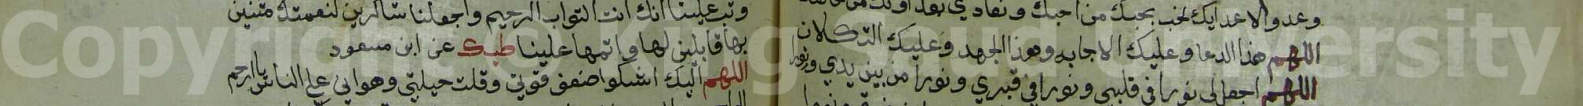 وعدوا لاعدايك نحب بحبك من احبك ونعادي بعداوتك من خالفك
اللهم هذا الدعا وعليك الاجابه وهذا الجهد وعليك التكلان
اللهم اجعل لي نورا في قلبي ونورا في قبري ونورا من بين يدي ونورا
وتب علينا انك انت التواب الرحيم واجعلنا شاكرين لنعمتك مثنين
بها قابلين لها واتمها علينا طب ك عن ابن مسعود
اللهم اليك اشكوا ضعف قوتي وقلت حيلتي وهواني علي الناس يا ارحم